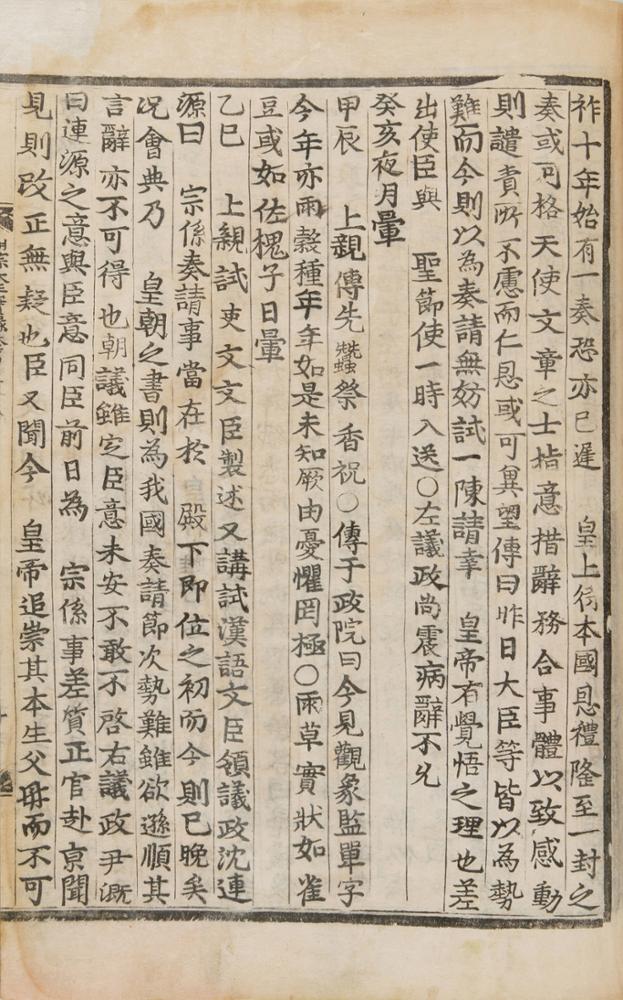 祚十年始有一奏恐亦已遲 皇上待本國恩禮隆至一封之
奏或可格 天使文章之士指意措辭務合事體以致感動
則譴責所不慮而仁恩或可冀望傳曰昨日大臣等皆以為勢
難而今則以為奏請無妨試一陳請幸 皇帝有覺悟之理也差
出使臣與 聖節使一時入送○左議政尚震病辭不允
癸亥夜月暈
甲辰 上親傳先蠶祭香祝○傳于政院曰今見觀象監單字
今年亦雨穀種年年如是未知厥由憂懼罔極○雨草實狀如雀
豆或如佐槐子日暈
乙巳 上親試吏文文臣製述又講試漢語文臣領議政沈連
源曰 宗係奏請事當在於 殿下即位之初而今則已晩矣
況會典乃 皇朝之書則為我國奏請節次勢難雖欲遜順其
言辭亦不可得也朝議雖定臣意未安不敢不啓右議政尹漑
曰連源之意與臣意同臣前日為 宗係事差質正官赴京聞
見則改正無疑也臣又聞今 皇帝追崇其本生父母而不可